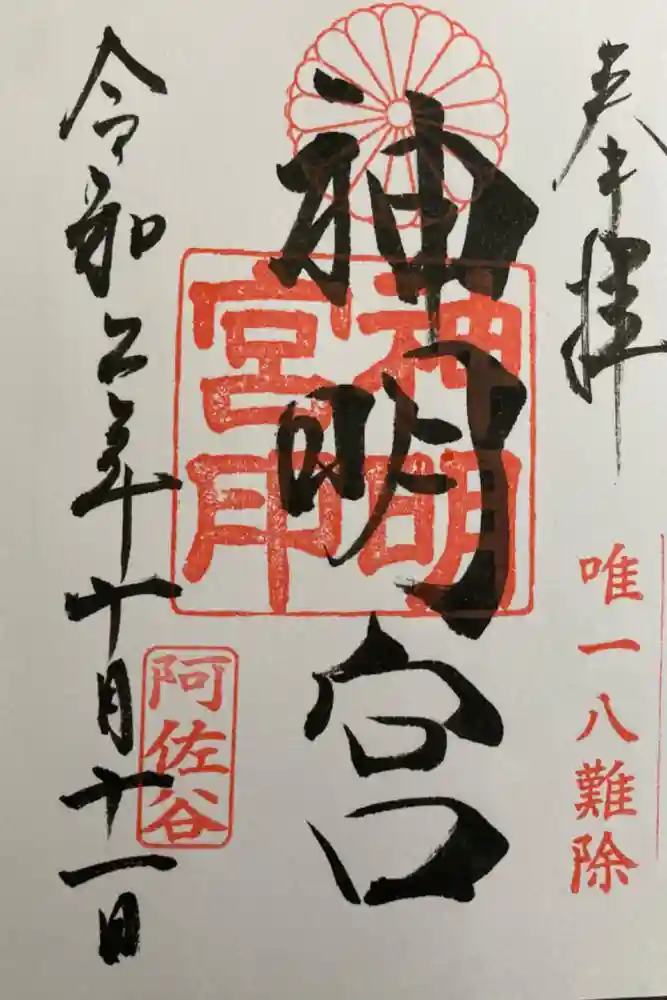 奉拝
唯一八難除
神明宮
神明宮印
令和二年十月十一日
阿佐谷